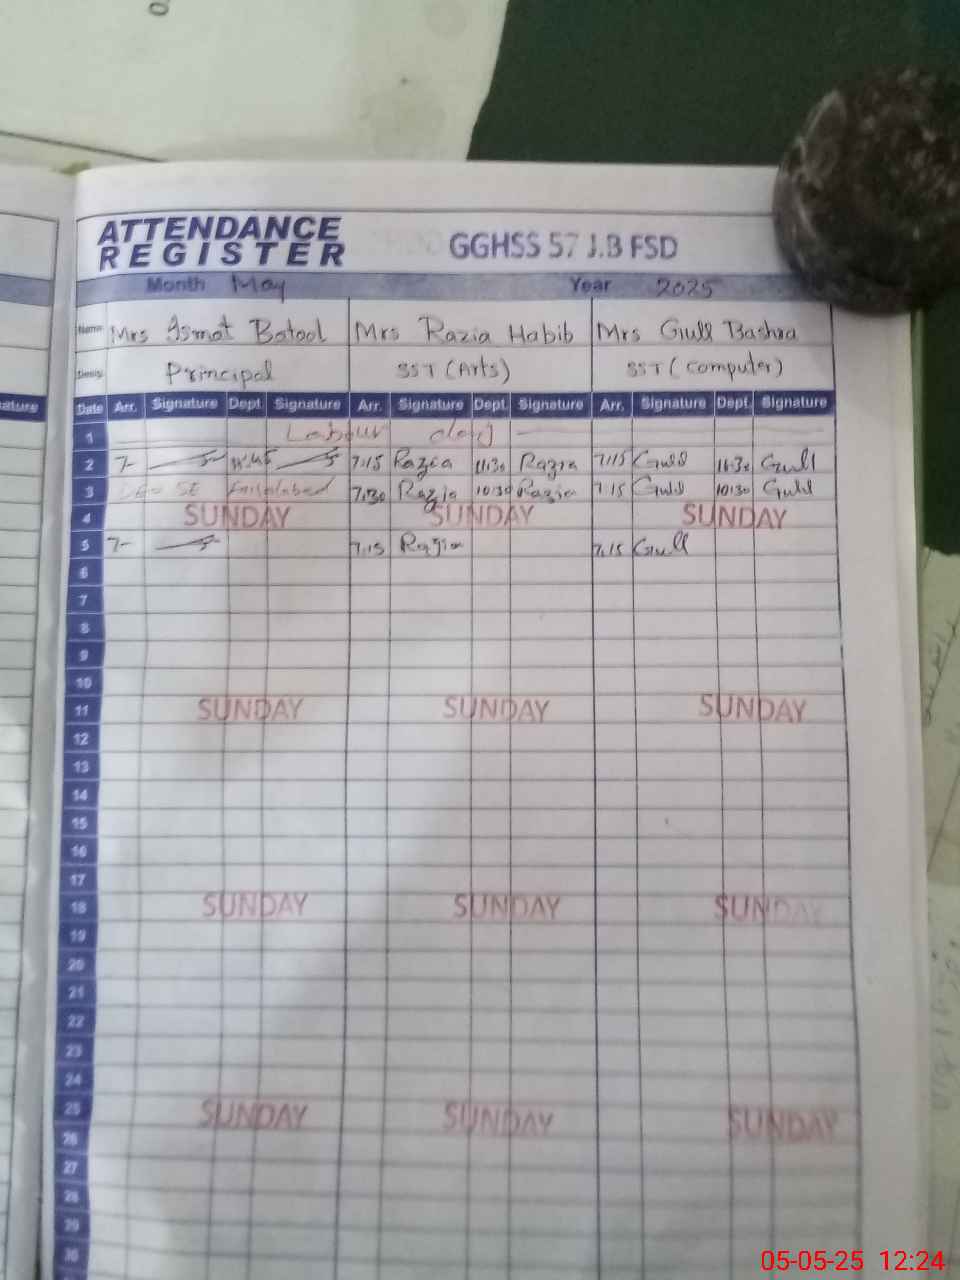 ATTENDANCE
REGISTER
GGHSS 57 J.B FSD
Month May Year 2025
Name Mrs Ismat Batool Mrs Razia Habib Mrs Gull Bashra
Desig. Principal SST (Arts) SST (Computer)
Date Arr. Signature Dept. Signature Arr. Signature Dept. Signature Arr. Signature Dept. Signature
1 Labour day
2 7- 7:15 Razia 11:30 Razia 7:15 Gull 11:30 Gull
3 Faisalabad 7:30 Razia 10:30 Razia 7:15 Gull 10:30 Gull
4 SUNDAY SUNDAY SUNDAY
5 7- 7:15 Razia 7:15 Gull
6
7
8
9
10
11 SUNDAY SUNDAY SUNDAY
12
13
14
15
16
17
18 SUNDAY SUNDAY SUNDAY
19
20
21
22
23
24
25 SUNDAY SUNDAY SUNDAY
26
27
28
29
30
05-05-25 12:24